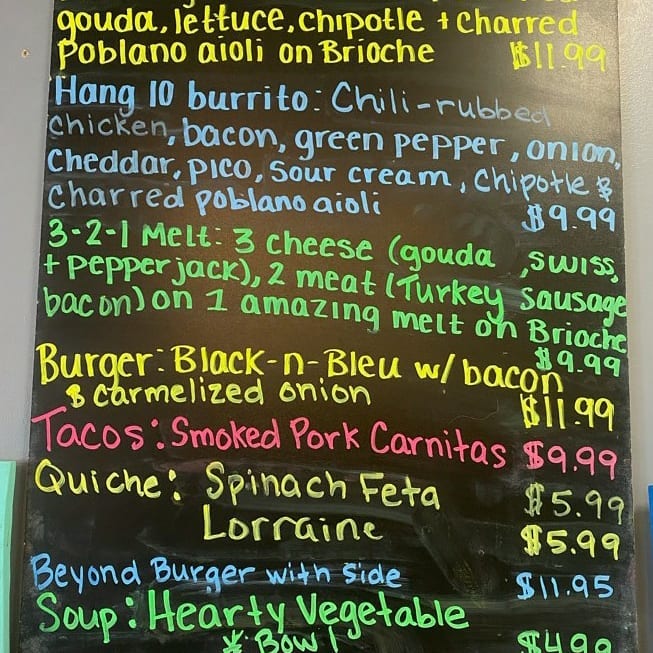 gouda, lettuce, chipotle + charred
Poblano aioli on Brioche $11.99
Hang 10 burrito: Chili-rubbed
chicken, bacon, green pepper, onion,
Cheddar, pico, sour cream, chipotle &
Charred poblano aioli $9.99
3-2-1 Melt: 3 cheese (gouda, swiss,
+ pepper jack), 2 meat (Turkey, sausage
bacon) on 1 amazing melt on Brioche
$9.99
Burger: Black-n-Bleu w/ bacon
& carmelized onion $11.99
Tacos: Smoked Pork Carnitas $9.99
Quiche: Spinach Feta $5.99
Lorraine $5.99
Beyond Burger with side $11.95
Soup: Hearty Vegetable
* Bowl $4.99